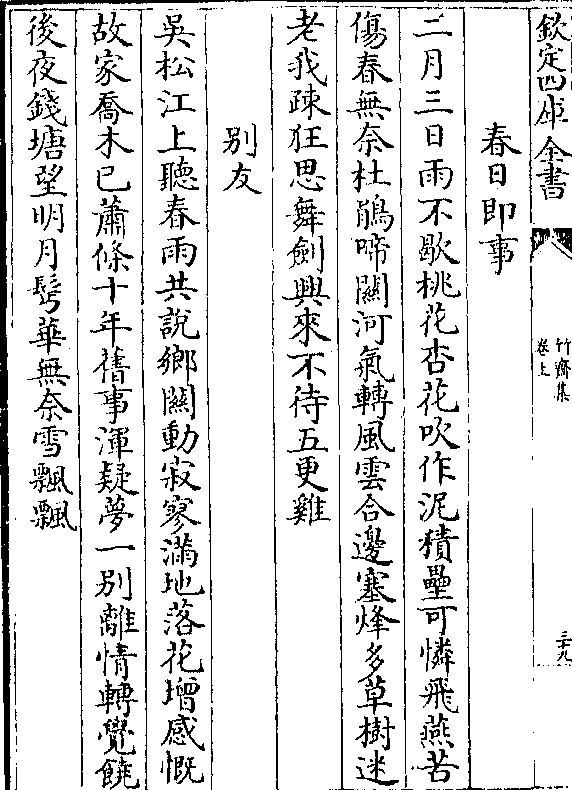 欽定四庫全書
竹齋集
卷上
三十九
春日即事
二月三日雨不歇桃花杏花吹作泥積壘可憐飛燕苦
傷春無奈杜鵑啼關河氣轉風雲合邊塞烽多草樹迷
老我疎狂思舞劍興來不待五更雞
别友
吳松江上聽春雨共說鄉關動寂寥滿地落花增感慨
故家喬木已蕭條十年舊事渾疑夢一别離情轉覺饒
後夜錢塘望明月鬂華無奈雪飄飄